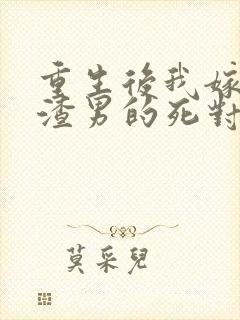 重生後我嫁
渣男的死對
莫采兒